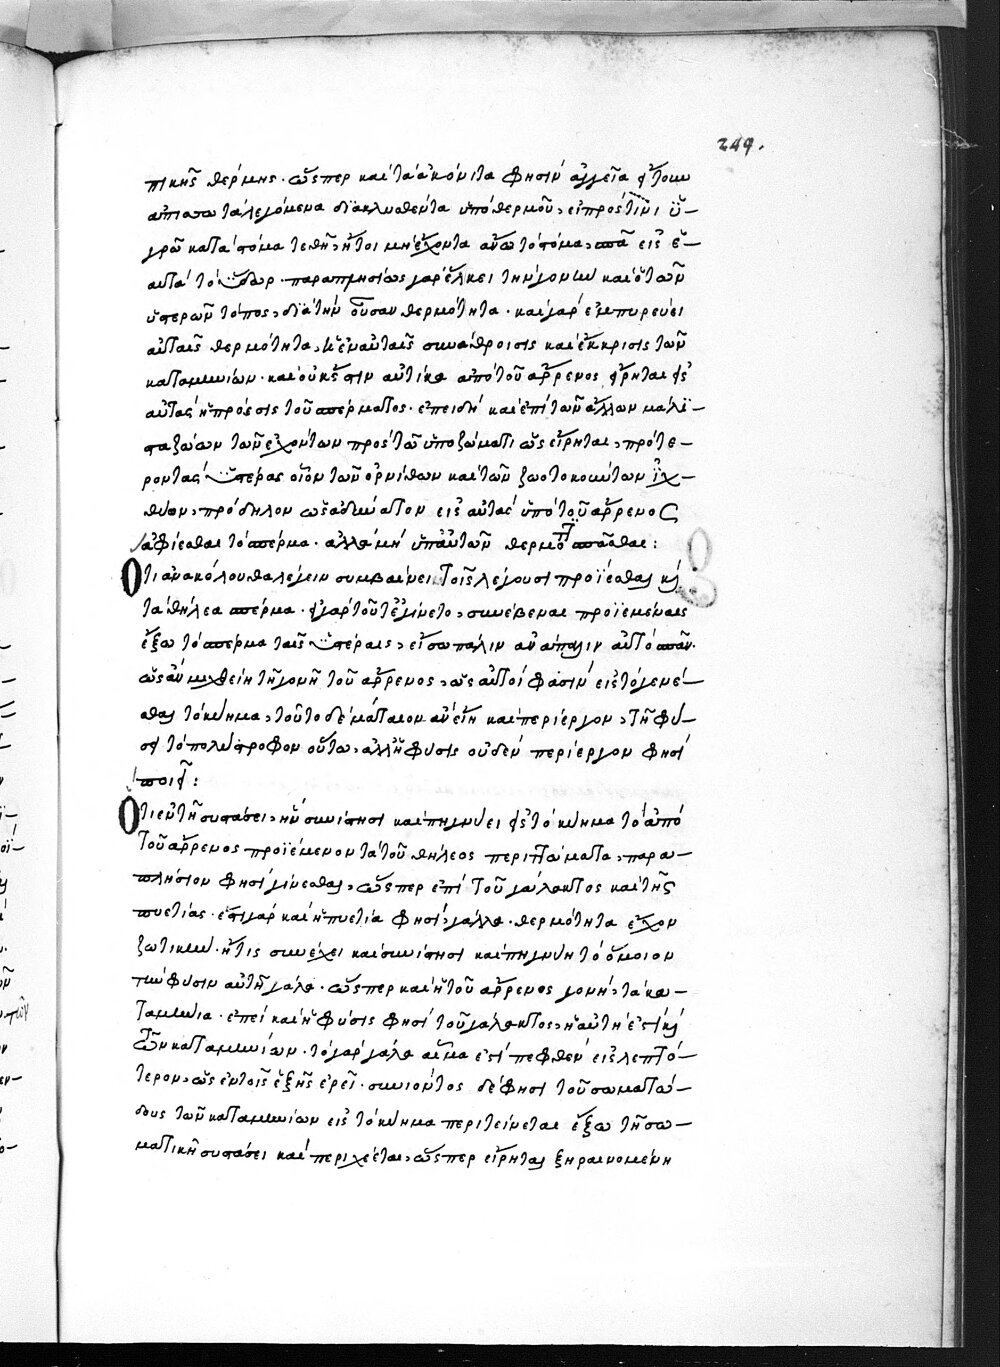 249.
πικῆς θέρμης. ὥσπερ καὶ τὰ ἀκόνιτα φησὶν ἀγγεῖα
τὰ λεγόμενα διακλυσθέντα ὑπὸ θερμοῦ, εἰ πρός τινι ὑ-
γρῶ κατὰ στόμα τεθῆ, ἤτοι μὴ ἔχοντα ἄνω τὸ στόμα, σπᾶ εἰς ἑ-
αυτὰ τὸ ὕδωρ. παραπλησίως γὰρ ἕλκει τὴν γονὴν καὶ ὁ τῶν
ὑστερῶν τόπος, διὰ τὴν οὖσαν θερμότητα. καὶ γὰρ ἐμπυρεύει
αὐταῖς θερμότητα, ἡ ἐν αὐταῖς συνάθροισις καὶ ἔκκρισις τῶν
καταμηνίων. καὶ οὐκ ἔστιν αὐτίκα ἀπὸ τοῦ ἄρρενος
αὐτὰς ἡ πρόεσις τοῦ σπέρματος. ἐπειδὴ καὶ ἐπὶ τῶν ἄλλων μάλι-
στα ζώων τῶν ἐχόντων πρὸς τῶ ὑποζώματι ὡς εἴρηται, πρότε-
ρον τὰς ὑστέρας οἷον τῶν ὀρνίθων καὶ τῶν ζωοτοκούντων ἰχ-
θύων, πρόδηλον ὡς ἀδύνατον εἰς αὐτὰς ὑπὸ τοῦ ἄρρενος
ἀφίεσθαι τὸ σπέρμα. ἀλλὰ μὴ ὑπ' αὐτῶν θερμο σπᾶσθαι:
Ὅτι ἀνακόλουθα λέγειν συμβαίνει τοῖς λέγουσι προΐεσθαι καὶ
τὰ θήλεα σπέρμα. εἰ γὰρ τοῦτ' ἐγίνετο, συνέβη προϊεμέναις
ἔξω τὸ σπέρμα ταῖς ὑστέραις, εἴσω πάλιν ἀνάπαλιν αὐτὸ σπᾶν.
ὡς ἂν μιχθείη τῆ γονῆ τοῦ ἄρρενος, ὡς αὐτοί φασιν εἰς τὸ γενέ-
σθαι τὸ κύημα, τοῦτο δὲ μάταιον ἂν εἴη καὶ περίεργον, τῆ φύ-
σι τὸ πολύστροφον οὕτω, ἀλλ' ἡ φύσις οὐδὲν περίεργον φησὶ
ποιεῖ:
Ὅτι ἐν τῆ συστάσει, ἣν συνίστησι καὶ πηγνύει εἰς τὸ κύημα τὸ ἀπὸ
τοῦ ἄρρενος προϊέμενον τὰ τοῦ θήλεος περιττώματα, παρα-
πλήσιον φησὶ γίνεσθαι, ὥσπερ ἐπὶ τοῦ γάλακτος καὶ τῆς
πυετίας. ἔστι γὰρ καὶ ἡ πυετία φησί, γάλα. θερμότητα ἔχον
ζωτικὴν. ἥτις συνέχει καὶ συνίστησι καὶ πήγνυσι τὸ ὅμοιον
τὴν φύσιν αὐτῆ γάλα. ὥσπερ καὶ ἡ τοῦ ἄρρενος γονή, τὰ κα-
ταμήνια. ἐπεὶ καὶ ἡ φύσις φησὶ τοῦ γάλακτος, ἡ αὐτή ἐστι καὶ
τῶν καταμηνίων. τὸ γὰρ γάλα αἷμα ἐστὶ πεφθὲν εἰς λεπτό-
τερον, ὡς ἐν τοῖς ἑξῆς ἐρεῖ. συνιόντος δέ φησι τοῦ σωματώ-
δους τῶν καταμηνίων εἰς τὸ κύημα περιτείνεται ἔξω τῆ σω-
ματικῆ συστάσει καὶ περιχεῖται, ὥσπερ εἴρηται ξηραινομένη